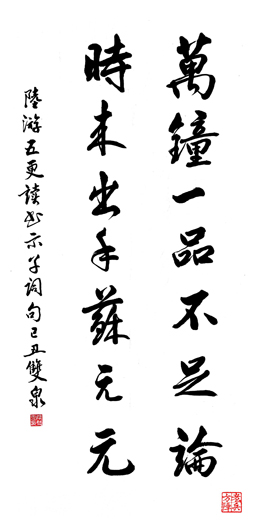 萬鐘一品不足論
時來出手蘇元元
陸游五更读书示子詞句己丑雙泉